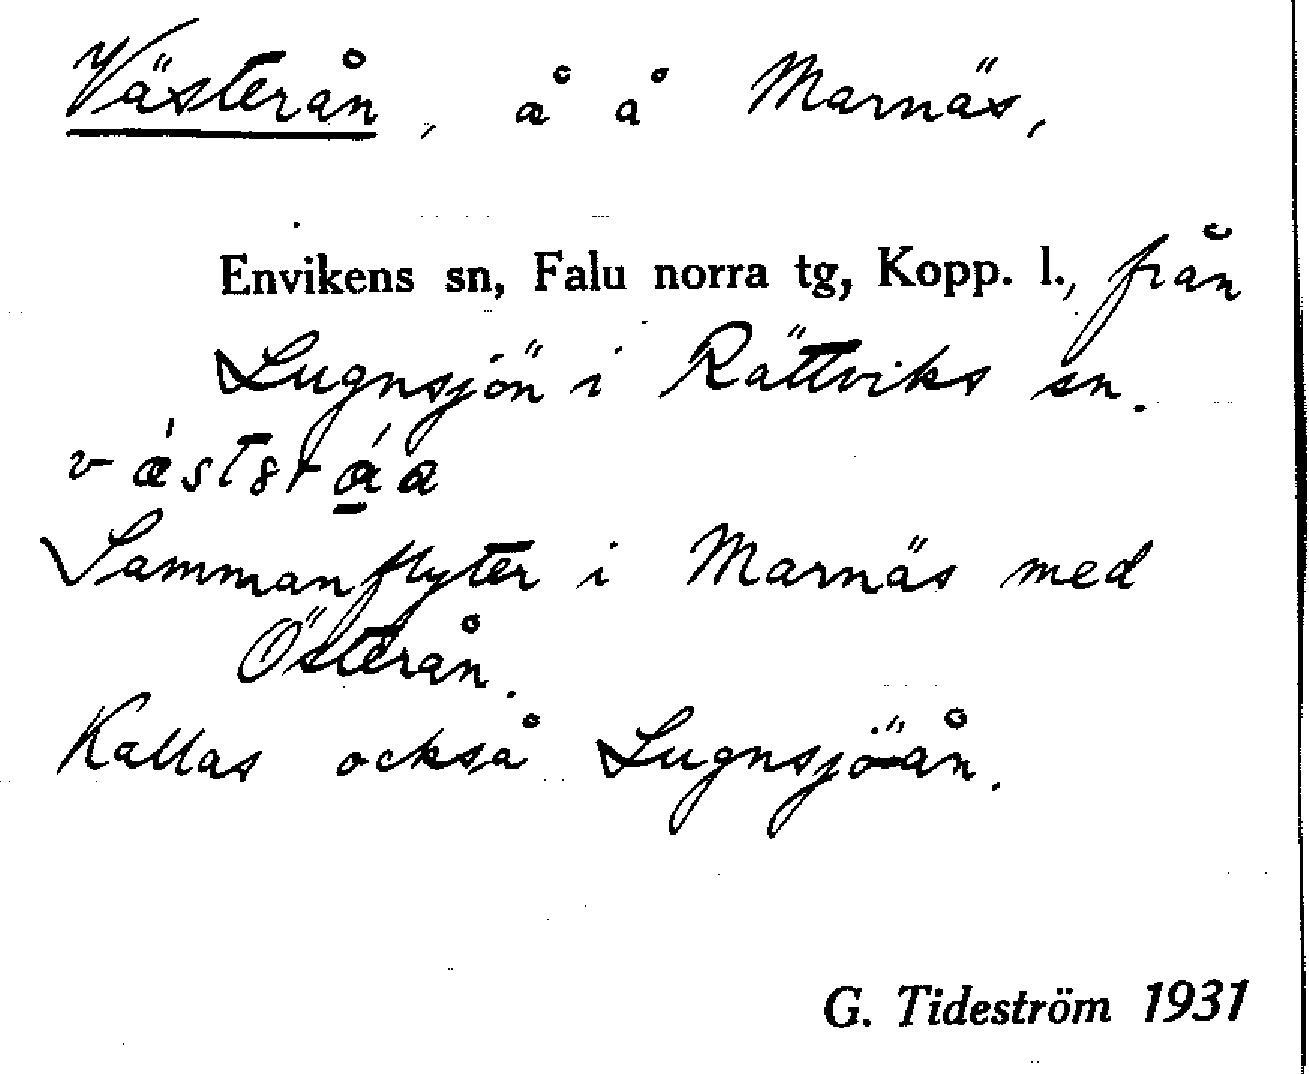 Västerån, å å Marnäs,
Envikens sn, Falu norra tg, Kopp. l., från
Lugnsjön i Rättviks sn.
Sammanflyter i Marnäs med
Österån.
Kallas också Lugnsjöån.
G. Tideström 1931